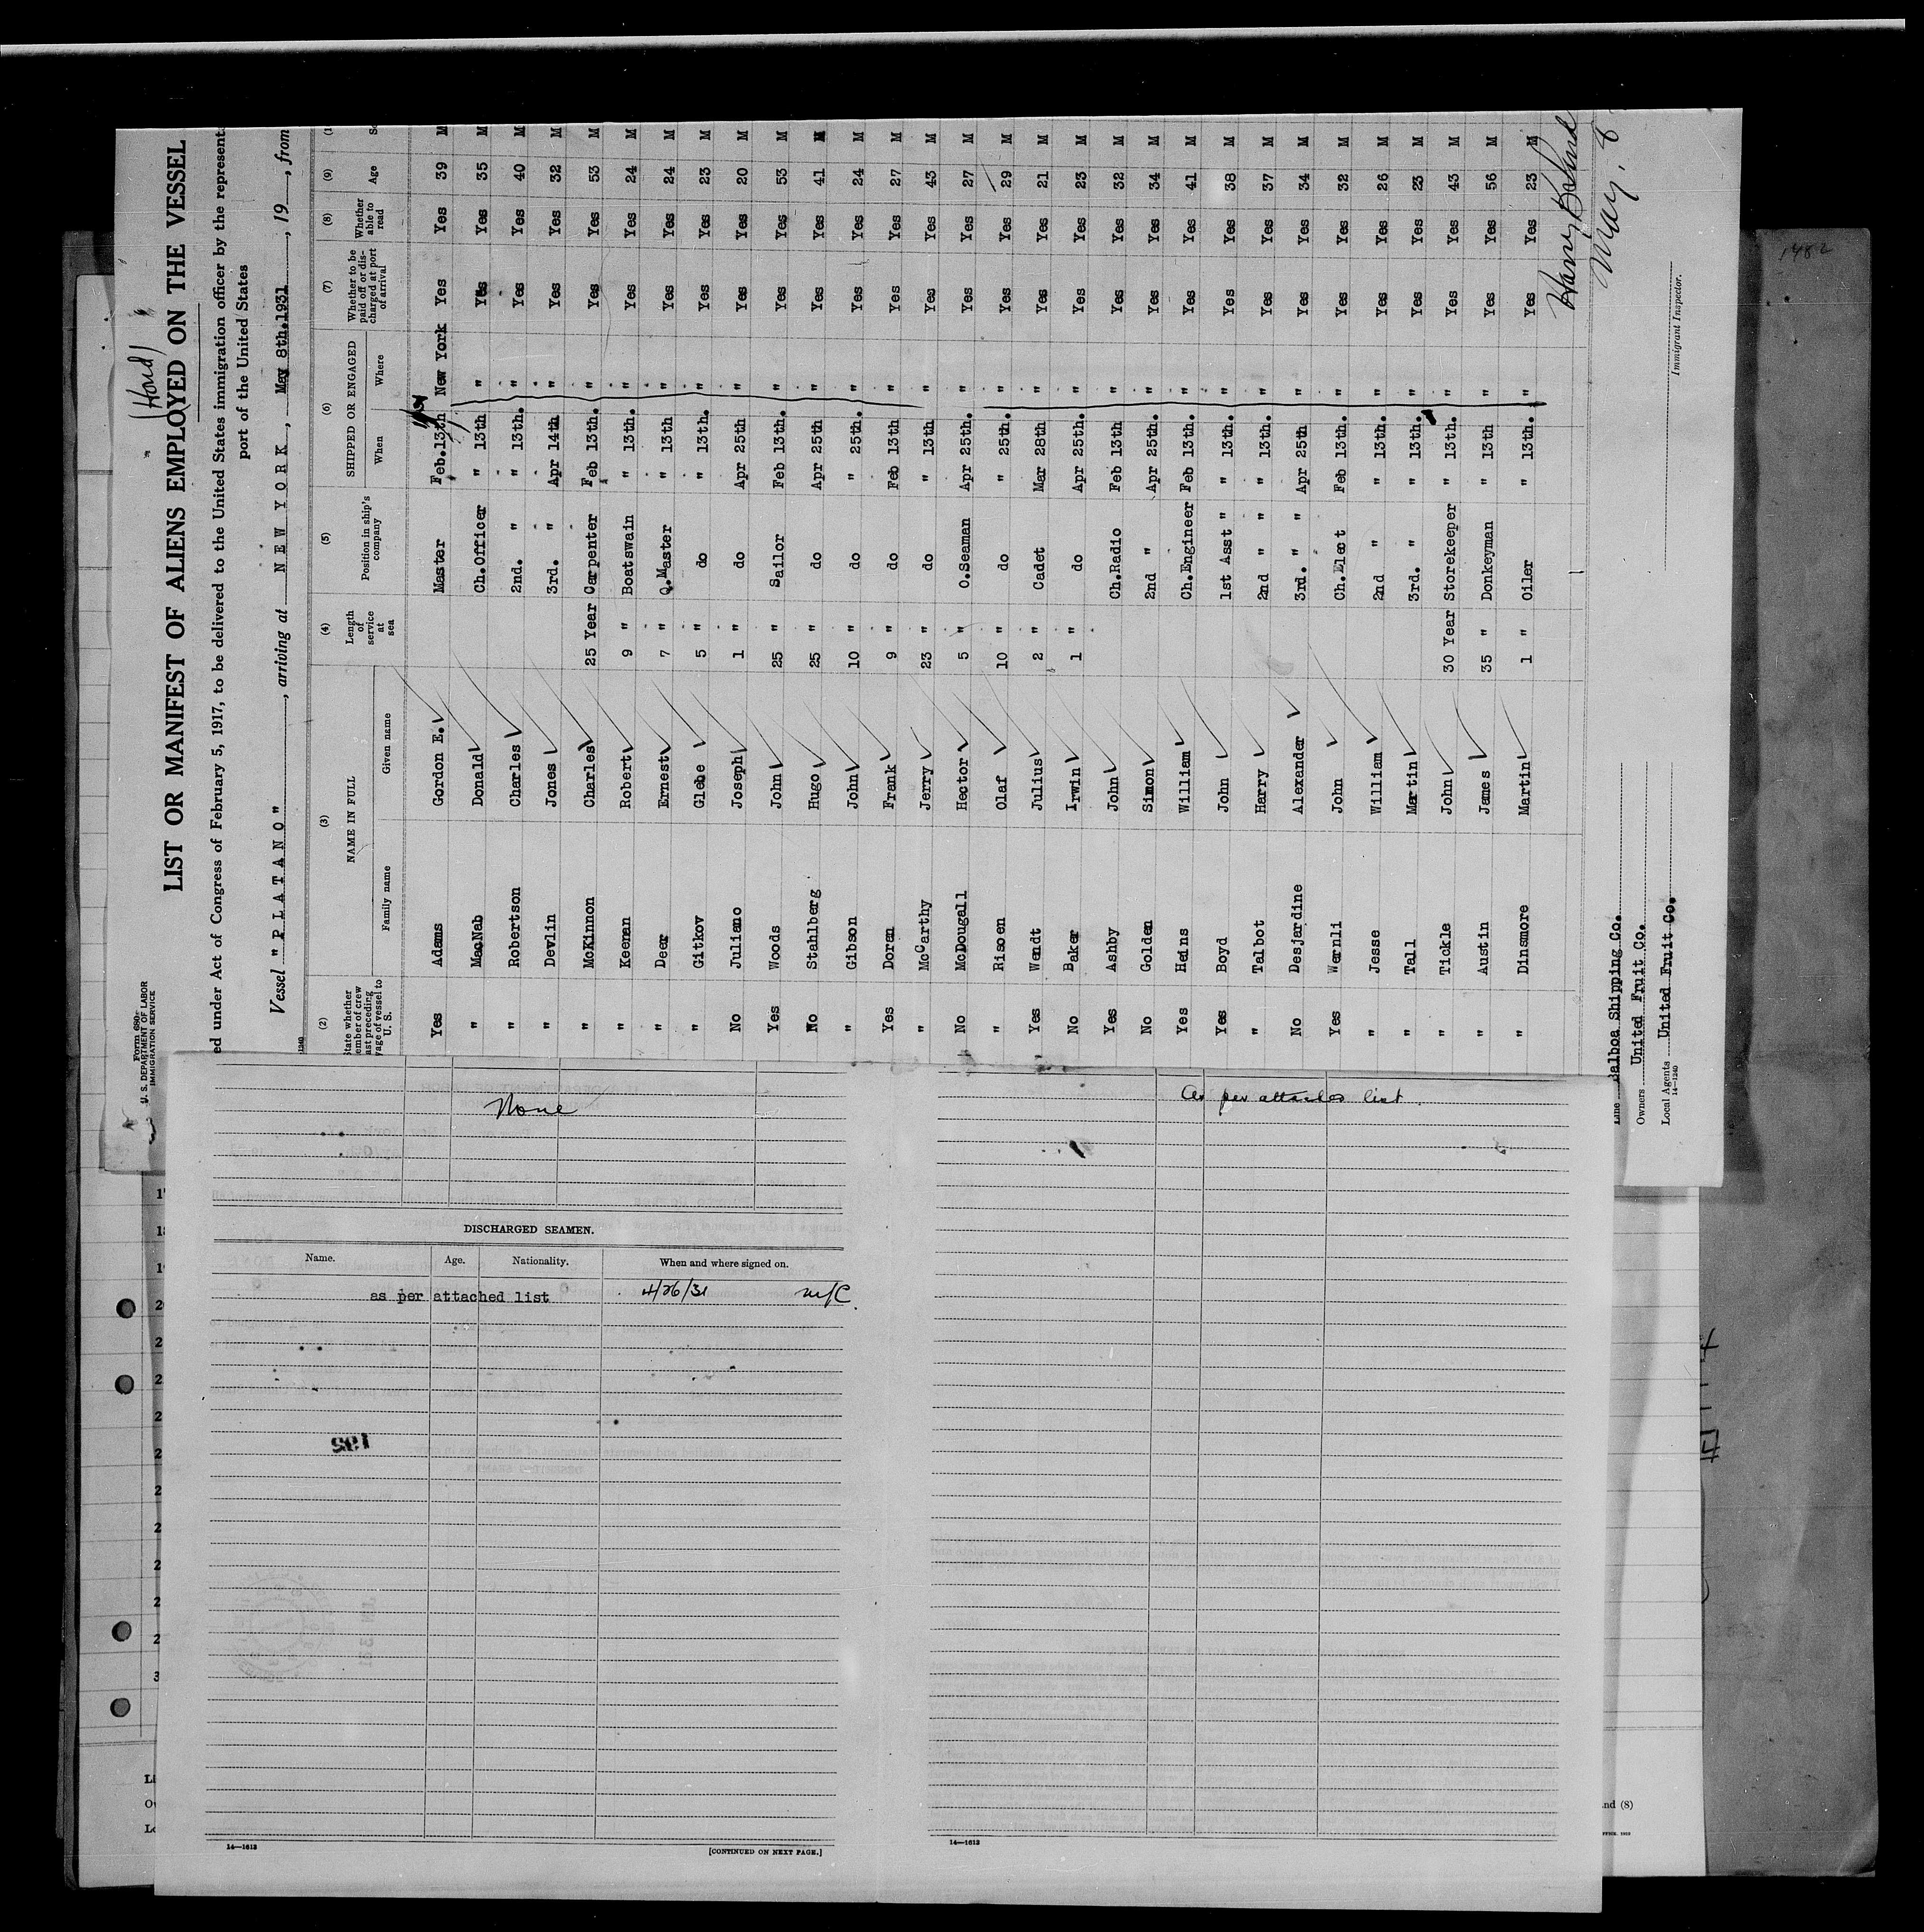 Form 680
U. S. DEPARTMENT OF LABOR
IMMIGRATION SERVICE
LIST OR MANIFEST OF ALIENS EMPLOYED ON THE VESSEL
ed under Act of Congress of February 5, 1917, to be delivered to the United States immigration officer by the represent
port of the United States
Vessel "PLATANO", arriving at NEW YORK, May 8th.1931, 19, from
(2) (3) (4) (5) (6) (7) (8) (9)
State whether member of crew last preceding voyage of vessel to U. S. NAME IN FULL Family name Given name Length of service at sea Position in ship's company SHIPPED OR ENGAGED When Where Whether to be paid off or discharged at port of arrival Whether able to read Age
Yes Adams Gordon E. Master Feb.13th New York Yes Yes 39 M
" MacNab Donald Ch.Officer " 13th " Yes Yes 35 M
" Robertson Charles 2nd. " " 13th. " Yes Yes 40 M
" Devlin Jones 3rd. " Apr 14th " Yes Yes 32 M
" McKinnon Charles 25 Year Carpenter Feb 13th. " Yes Yes 53 M
" Keenan Robert 9 " Boatswain " 13th. " Yes Yes 24 M
" Deer Ernest 7 " Q.Master " 13th " Yes Yes 24 M
" Gitkov Glebe 5 " do " 13th. " Yes Yes 23 M
No Juliano Joseph 1 " do Apr 25th " Yes Yes 20 M
Yes Woods John 25 " Sailor Feb 13th. " Yes Yes 53 M
No Stahlberg Hugo 25 " do Apr 25th " Yes Yes 41 M
" Gibson John 10 " do " 25th. " Yes Yes 24 M
Yes Doran Frank 9 " do Feb 13th " Yes Yes 27 M
" McCarthy Jerry 23 " do " 13th " Yes Yes 43 M
No McDougall Hector 5 " O.Seaman Apr 25th. " Yes Yes 27 M
" Risoen Olaf 10 " do " 25th. " Yes Yes 29 M
Yes Wendt Julius 2 " Cadet Mar 28th " Yes Yes 21 M
No Baker Irwin 1 " do Apr 25th. " Yes Yes 23 M
Yes Ashby John Ch.Radio Feb 13th " Yes Yes 32 M
No Golden Simon 2nd " Apr 25th. " Yes Yes 34 M
Yes Heins William Ch.Engineer Feb 13th. " Yes Yes 41 M
Yes Boyd John 1st Asst " " 13th. " Yes Yes 38 M
" Talbot Harry 2nd " " " 13th. " Yes Yes 37 M
No Desjardine Alexander 3rd. " " Apr 25th " Yes Yes 34 M
Yes Wernli John Ch.Elect Feb 13th. " Yes Yes 32 M
" Jesse William 2nd " " 13th. " Yes Yes 26 M
" Tall Martin 3rd. " " 13th. " Yes Yes 23 M
" Tickle John 30 Year Storekeeper " 13th. " Yes Yes 43 M
" Austin James 35 " Donkeyman " 13th " Yes Yes 56 M
" Dinsmore Martin 1 " Oiler " 13th. " Yes Yes 23 M
May, 8
Immigrant Inspector.
Line Balboa Shipping Co.
Owners United Fruit Co.
Local Agents United Fruit Co.
14—1240
None
DISCHARGED SEAMEN.
Name. Age. Nationality. When and where signed on.
as per attached list 4/26/31 NYC.
195
14—1613
[CONTINUED ON NEXT PAGE.]
As per attached list.
14—1613
1482
nd (8)